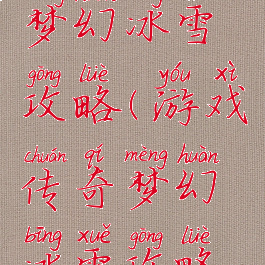 梦幻冰雪
gōng lüè yóu xì
攻略(游戏
chuán qí mèng huàn
传奇梦幻
bīng xuě gōng lüè
冰雪攻略